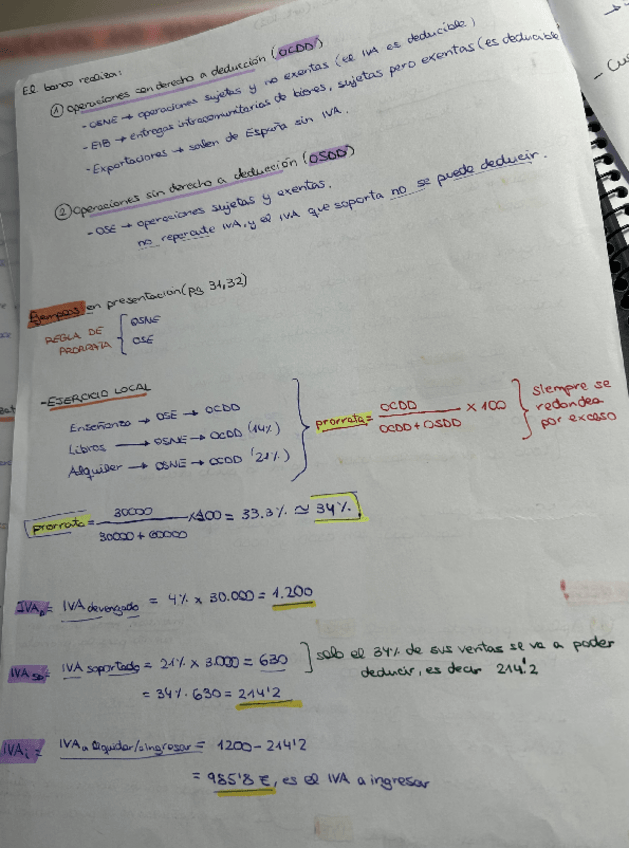 El banco realiza:
① Operaciones con derecho a deducción (OCDD)
- OSNE → operaciones sujetas y no exentas (el IVA es deducible)
- EIB → entregas intracomunitarias de bienes, sujetas pero exentas (es deducible
- Exportaciones → salen de España sin IVA.
② Operaciones sin derecho a deducción (OSDD)
- OSE → operaciones sujetas y exentas.
no repercute IVA, y el IVA que soporta no se puede deducir.
Ejemplos en presentación (pg 31,32)
REGLA DE PRORRATA { OSNE
OSE
- EJERCICIO LOCAL
Enseñanza → OSE → OCDD
Libros → OSNE → OCDD (14%)
Alquiler → OSNE → OCDD (21%)
prorrata = OCDD / OCDD + OSDD × 100 } siempre se redondea por exceso
prorrata = 30000 / 30000 + 60000 × 100 = 33.3% ≃ 34%.
IVA devengado = 4% × 30.000 = 1.200
IVA soportado = 21% × 3.000 = 630
= 34% · 630 = 214'2
] solo el 34% de sus ventas se va a poder
deducir, es decir 214'2
IVAi = IVA a liquidar/=ingresar = 1200 - 214'2
= 985'8 €, es el IVA a ingresar